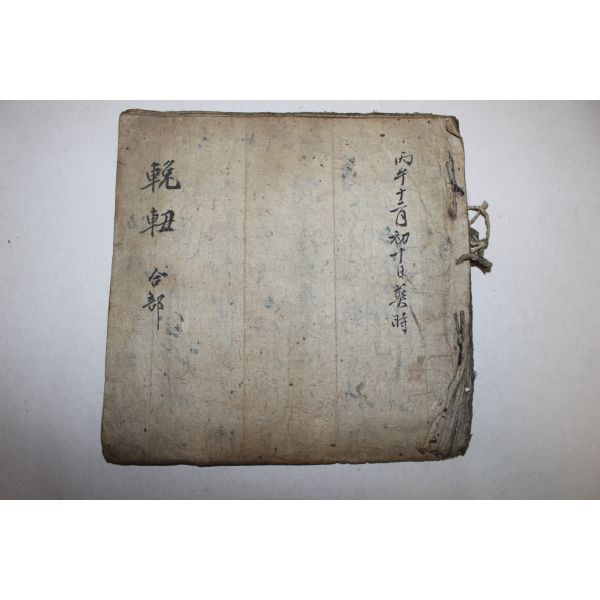 丙午十二月初十日葬時
輓軸 合部